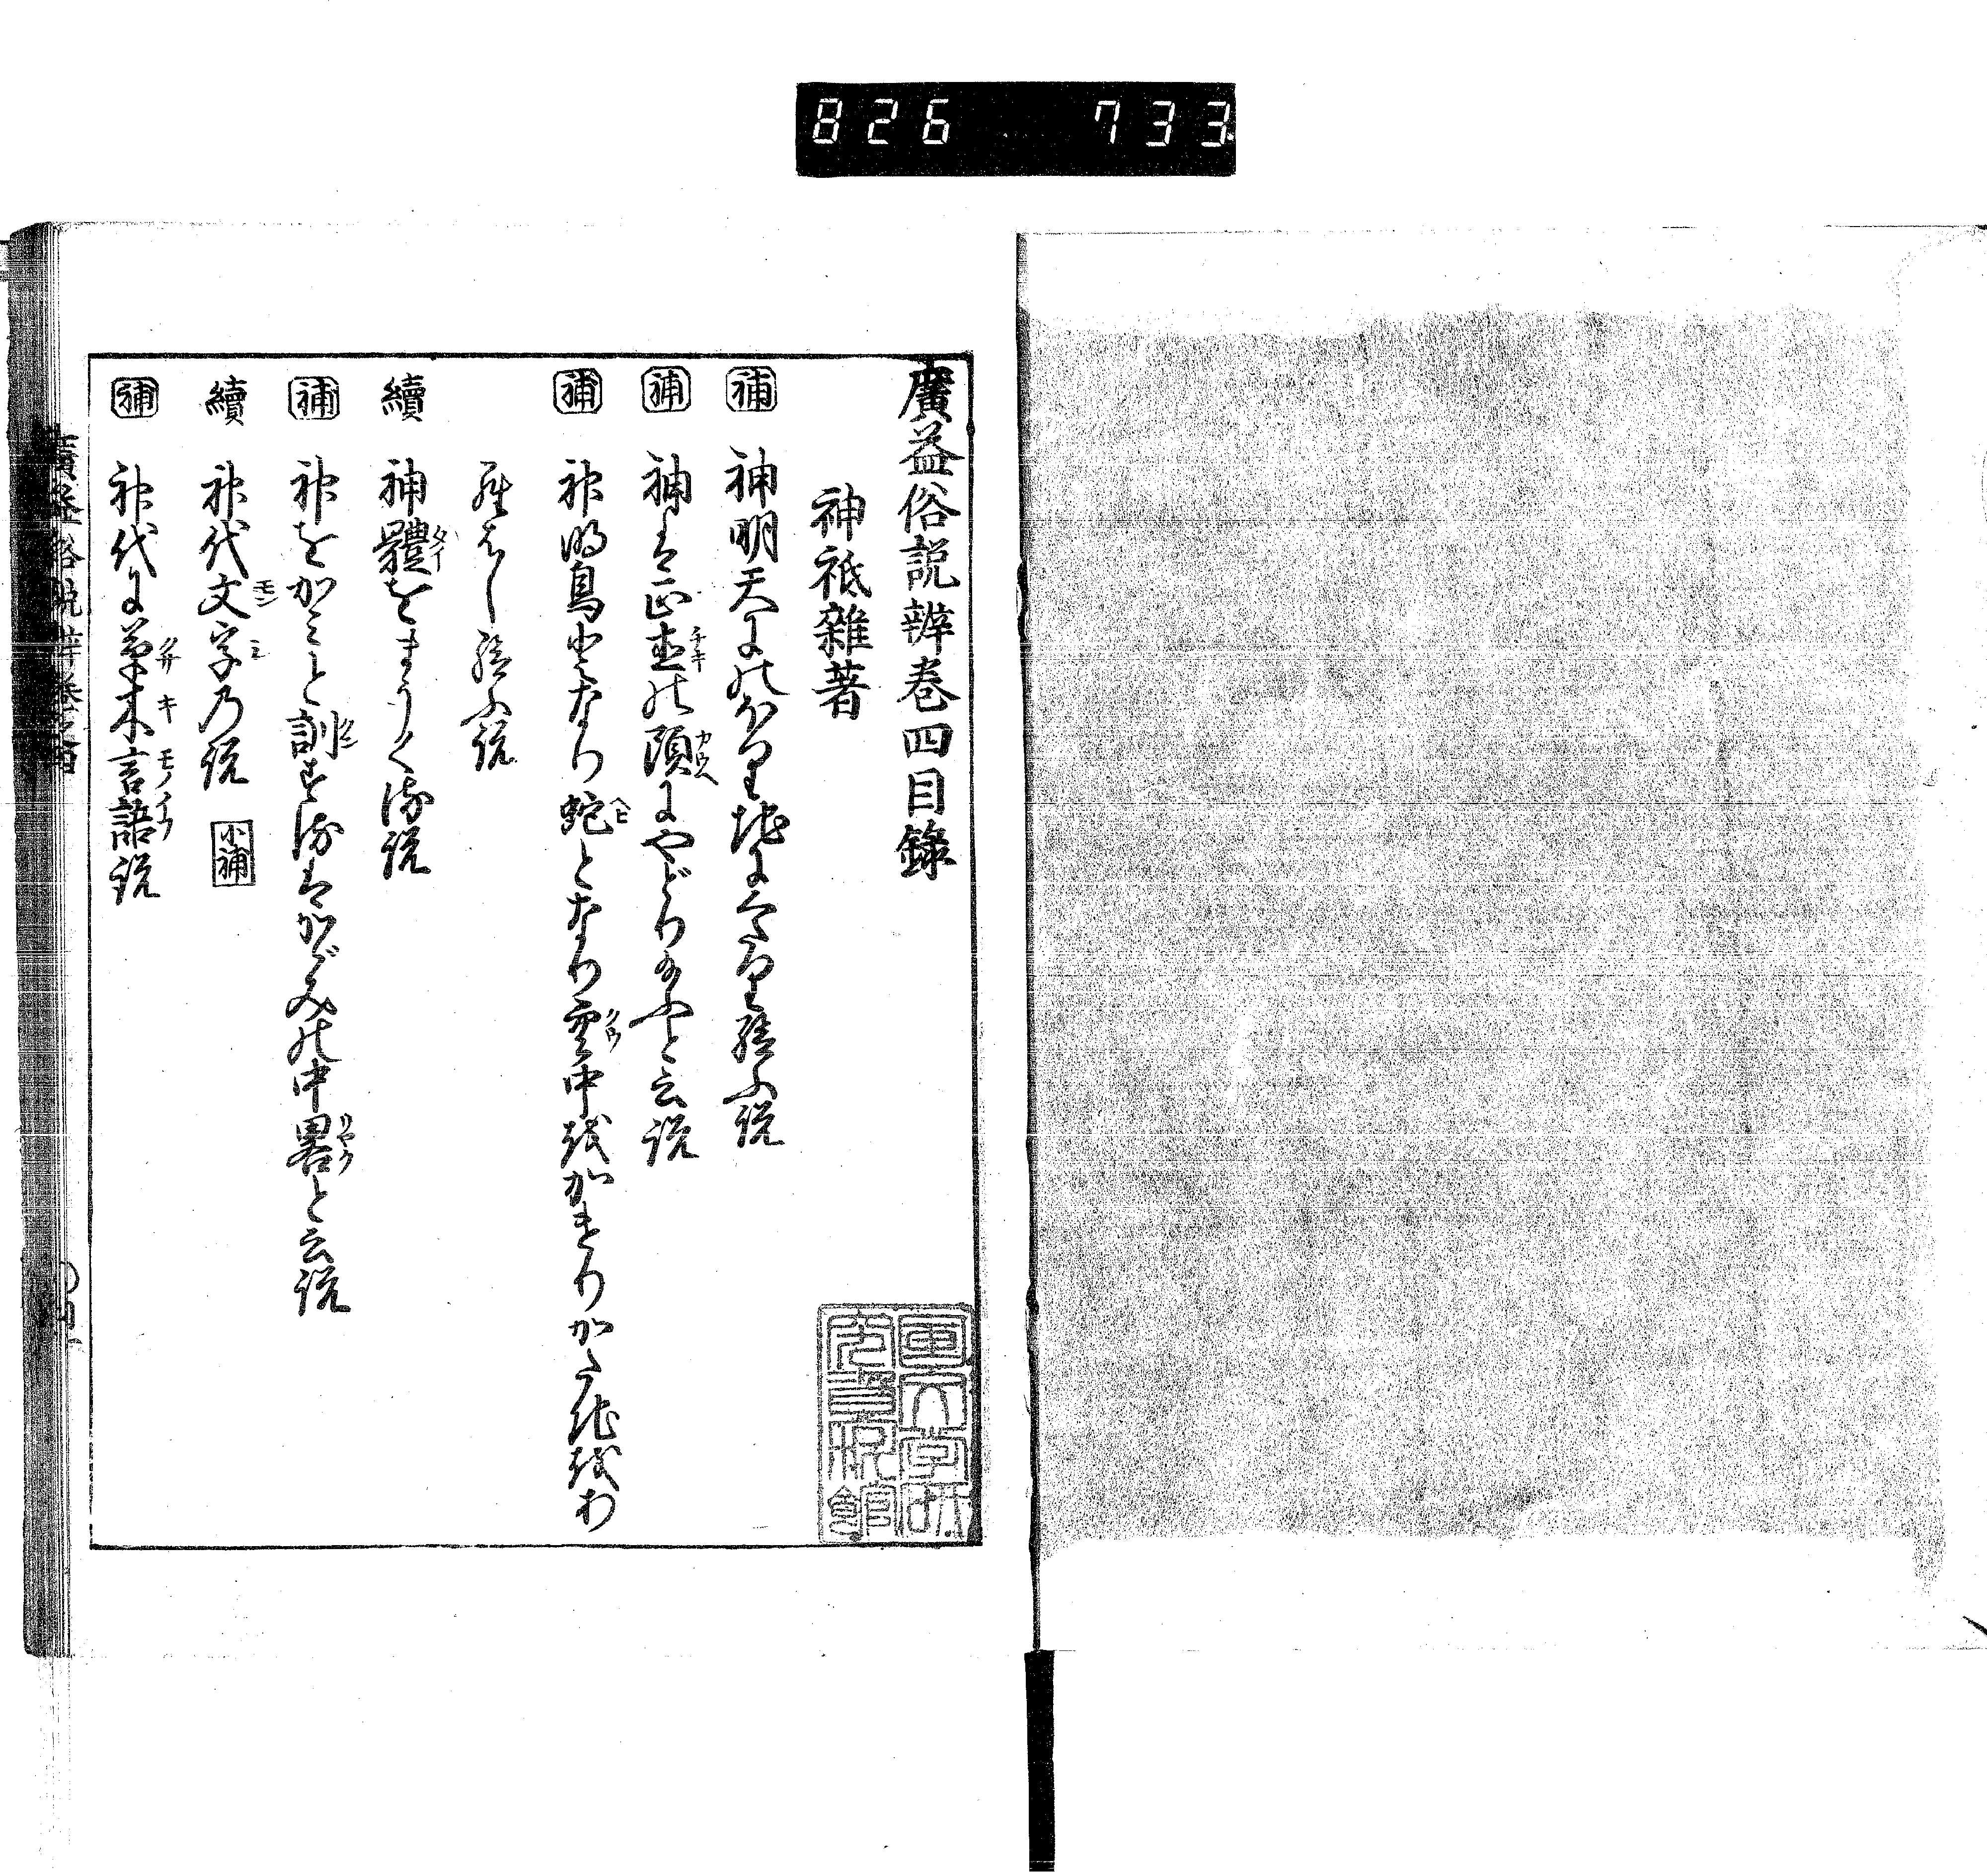 826 733
廣益俗説辨巻四目録
神祇雜著
補 神明天にのぼり地にくだり給ふ説
補 神は正直の頭にやどり給ふと云説
補 神明鳥となり蛇となり雲中をかけりかたちをあ
らはし給ふ説
續 神體をまうくる説
補 神をかみと訓ずるはかゞみの中畧と云説
續 神代文字乃説 小補
補 神代に草木言語説